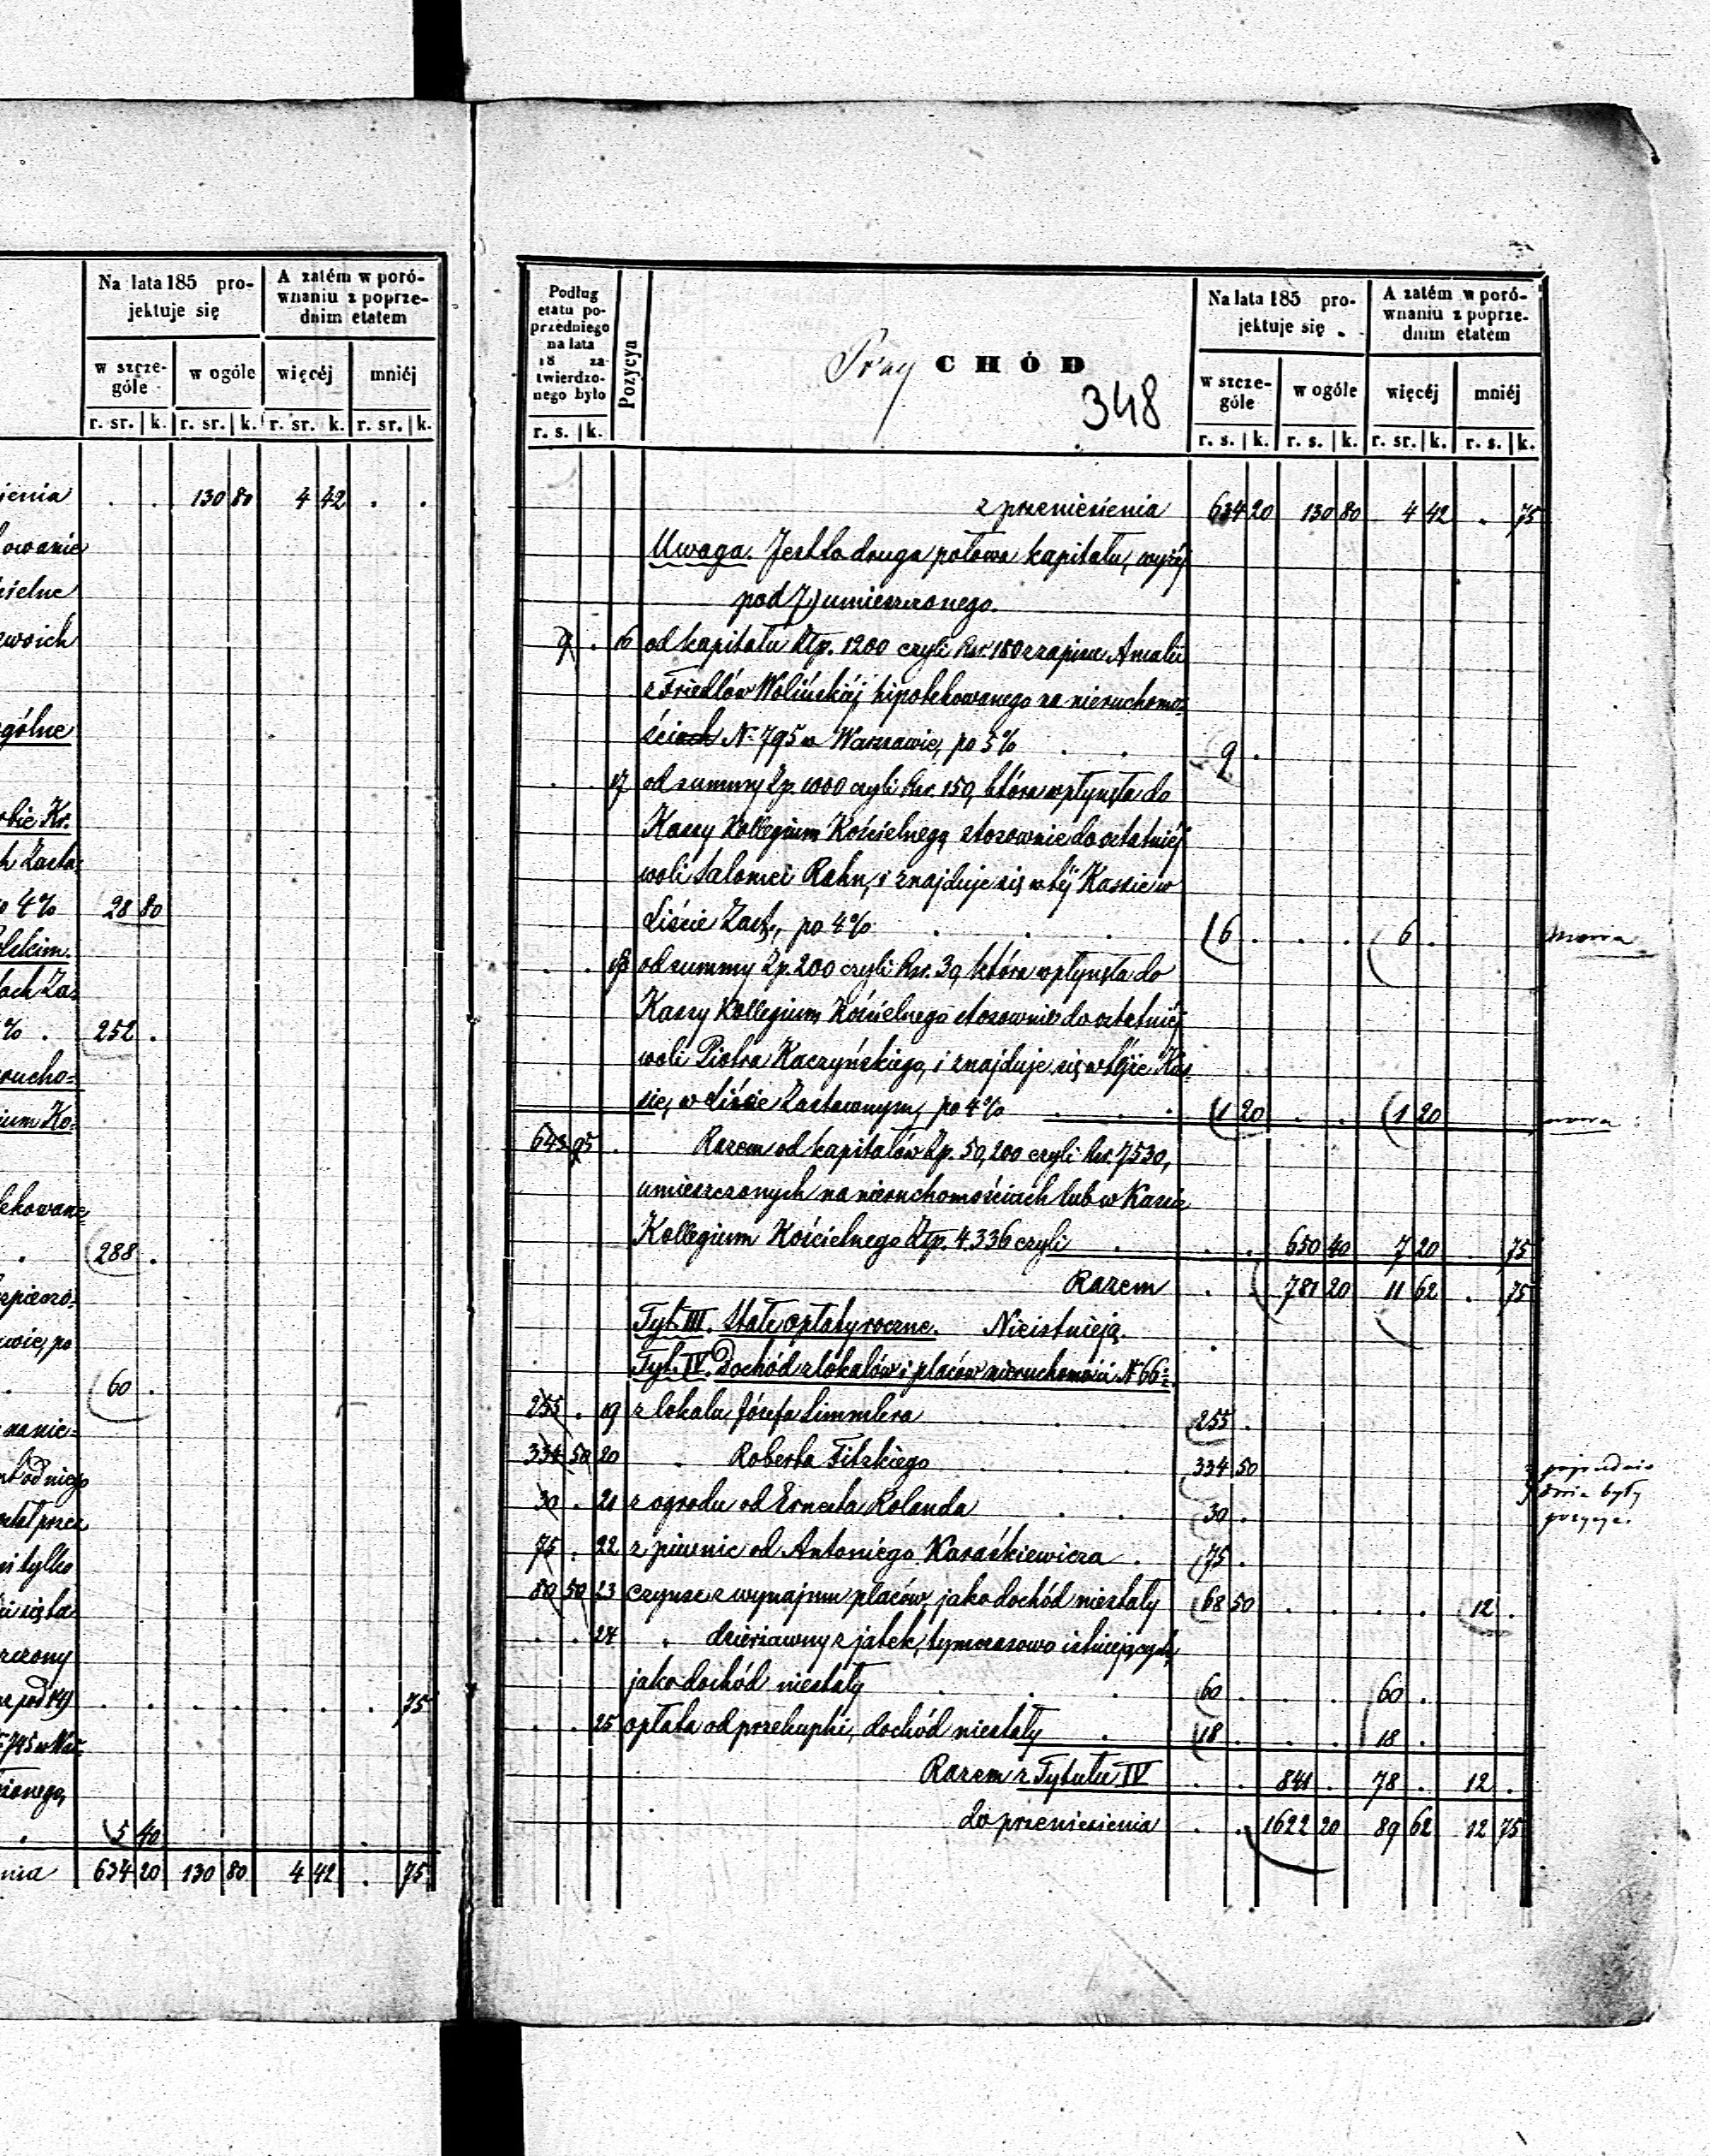 Na lata 185 pro-
jektuje się
A zatém w poró-
wnaniu z poprze-
dnim etatem
w szcze-
góle
w ogóle
więcéj
mniéj
r. sr. k. r. sr. k. r. sr. k. r. sr. k.
ienia . . 130 80 4 42 . .
owanie
ielne
swoich
gólne
obie Kr.
h Zasta-
o 4% 28 80
olskim.
tach Za-
% . 252 .
rucho=
ium Ko-
ekowane
. 288 .
zpiecz-
wie, po
. 60 .
na nie-
od niego
tał przez
i tylko
się ta
rczony
pod 14) . . . . . . . 75
ionego,
. 5 40
nia 634 20 130 80 4 42 . 75
Podług
etatu po-
przedniego
na lata
18 za-
twierdzo-
nego było
Pozycya
Przy CHÓD
348
Na lata 185 pro-
jektuje się
A zatém w poró-
wnaniu z poprze-
dnim etatem
w szcze-
góle
w ogóle
więcéj
mniéj
r. s. k. r. s. k. r. s. k. r. sr. k. r. s. k.
z przeniesienia 634 20 130 80 4 42 . 75
Uwaga. Jest to druga połowa kapitału, wyżéj
pod 7) umieszczonego.
9 . 16 od kapitału Złp. 1200 czyli Rsr. 180 z zapisu Amalii
z Friedlów Wolińskiéj hipotekowanego na nieruchomo=
ściach N. 795 w Warszawie, po 5% . . 9 .
. . 17 od summy Zp. 1000 czyli Rsr. 150, która wpłynęła do
Kassy Kollegium Kościelnego, stosownie do ostatniéj
woli Salomei Rahn, i znajduje się w téj Kassie w
Liście Zast., po 4% . . . 6 . . . 6 .
nowa
. . 18 od summy Zp. 200 czyli Rsr. 30, która wpłynęła do
Kassy Kollegium Kościelnego stosownie do ostatniéj
woli Piotra Kaczyńskiego, i znajduje się w téjże Kas-
sie, w Liście Zastawnym, po 4% . . . 1 20 . . 1 20
nowa
643 95 . Razem od kapitałów Zp. 50,200 czyli Rsr. 7530,
umieszczonych na nieruchomościach lub w Kassie
Kollegium Kościelnego Złp. 4.336 czyli . . . 650 40 7 20 . 75
Razem . 781 20 11 62 . 75
Tyt. III. Stałe opłaty roczne. Nieistnieją.
Tyt. IV. Dochód z lokalów i placów nieruchomości N 66
255 . 19 z lokalu Józefa Simmlera . . . 255 .
334 50 20 " Roberta Fitzkiego . . . 334 50
30 . 21 z ogrodu od Ernesta Rolanda . . 30 .
poprzednio
były
pozycye.
75 . 22 z piwnic od Antoniego Karaśkiewicza . 75 .
80 50 23 czynsz z wynajmu placów, jako dochód niestały 68 50 . . . . 12 .
. . 24 " dzierżawny z jatek, tymczasowo istniejących,
jako dochód niestały . . . 60 . . . 60 .
. . 25 opłata od przekupki, dochód niestały . 18 . . . 18 .
Razem z Tytułu IV . . 841 . 78 . 12 .
do przeniesienia . . 1622 20 89 62 12 75